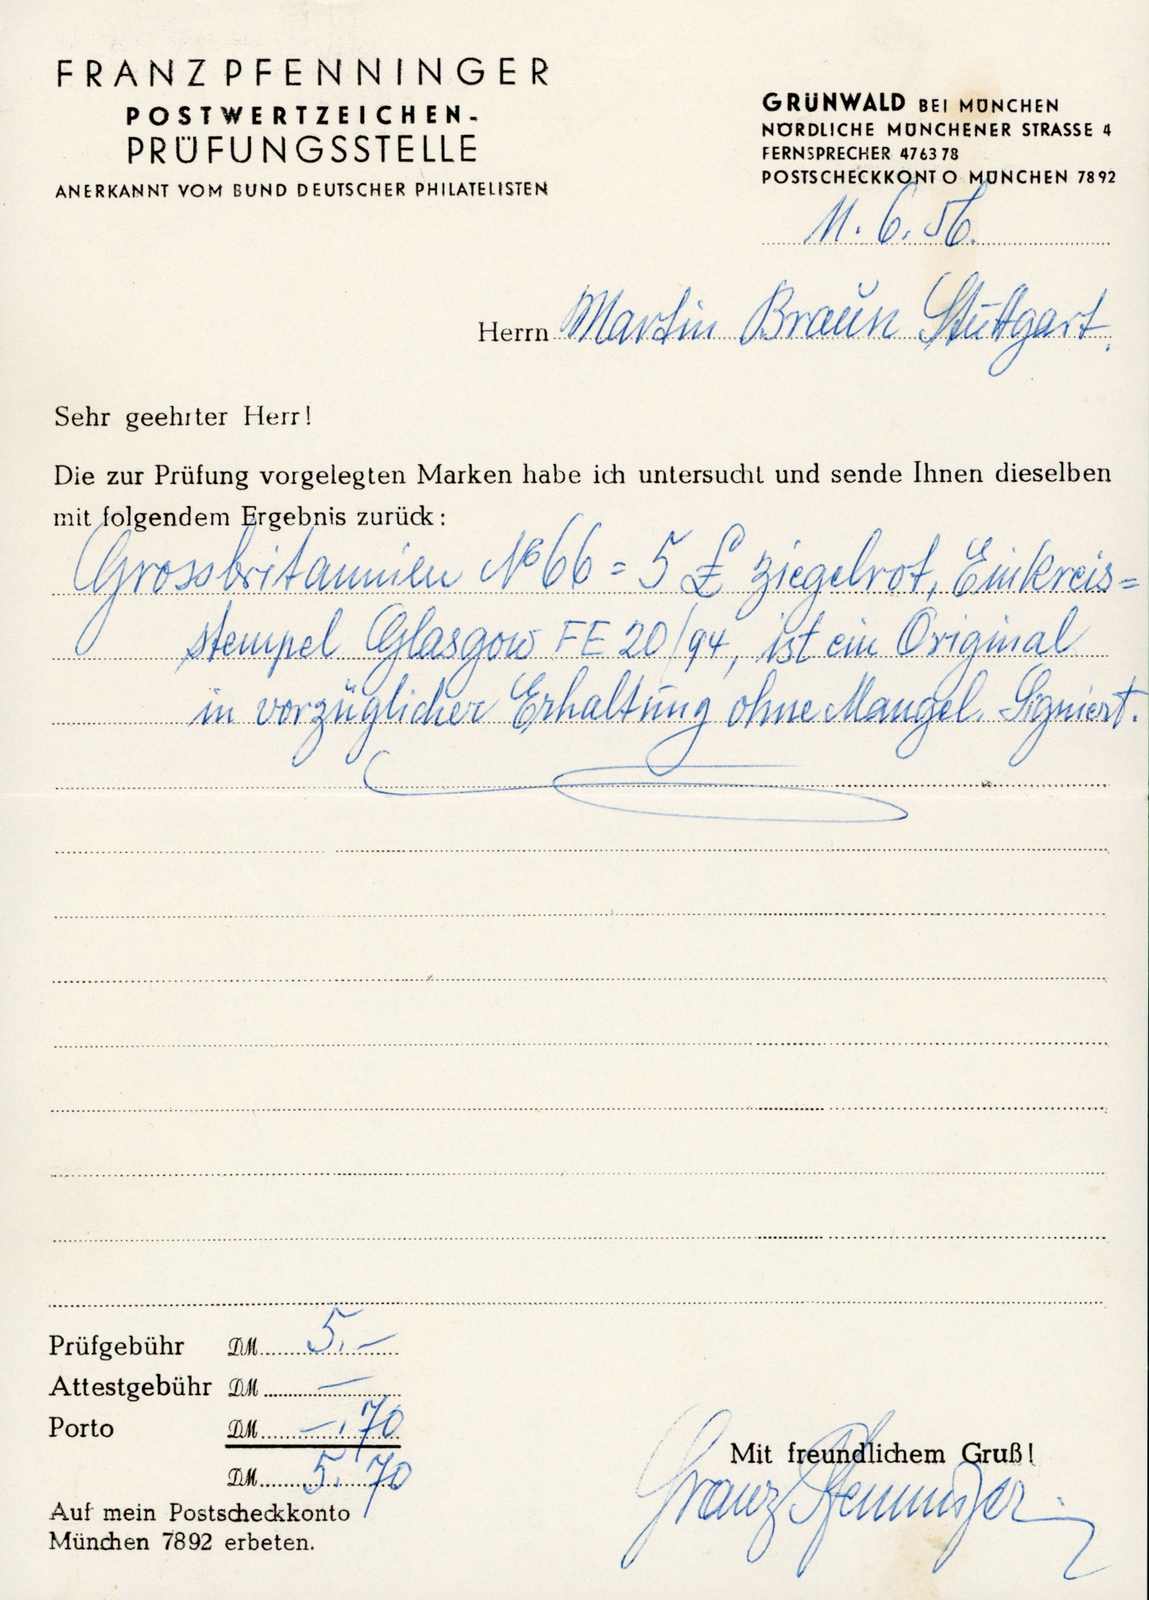 FRANZ PFENNINGER
POSTWERTZEICHEN-
PRÜFUNGSSTELLE
ANERKANNT VOM BUND DEUTSCHER PHILATELISTEN
GRÜNWALD BEI MÜNCHEN
NÖRDLICHE MÜNCHENER STRASSE 4
FERNSPRECHER 476378
POSTSCHECKKONTO MÜNCHEN 7892
11. 6. 56.
Herrn Martin Braun Stuttgart.
Sehr geehrter Herr!
Die zur Prüfung vorgelegten Marken habe ich untersucht und sende Ihnen dieselben
mit folgendem Ergebnis zurück:
Grossbritannien No 66 = 5 £ ziegelrot, Einkreis=
stempel Glasgow FE 20/94, ist ein Original
in vorzüglicher Erhaltung ohne Mangel. Signiert.
Prüfgebühr DM 5.—
Attestgebühr DM —
Porto DM —.70
DM 5.70
Auf mein Postscheckkonto
München 7892 erbeten.
Mit freundlichem Gruß!
Franz Pfenninger